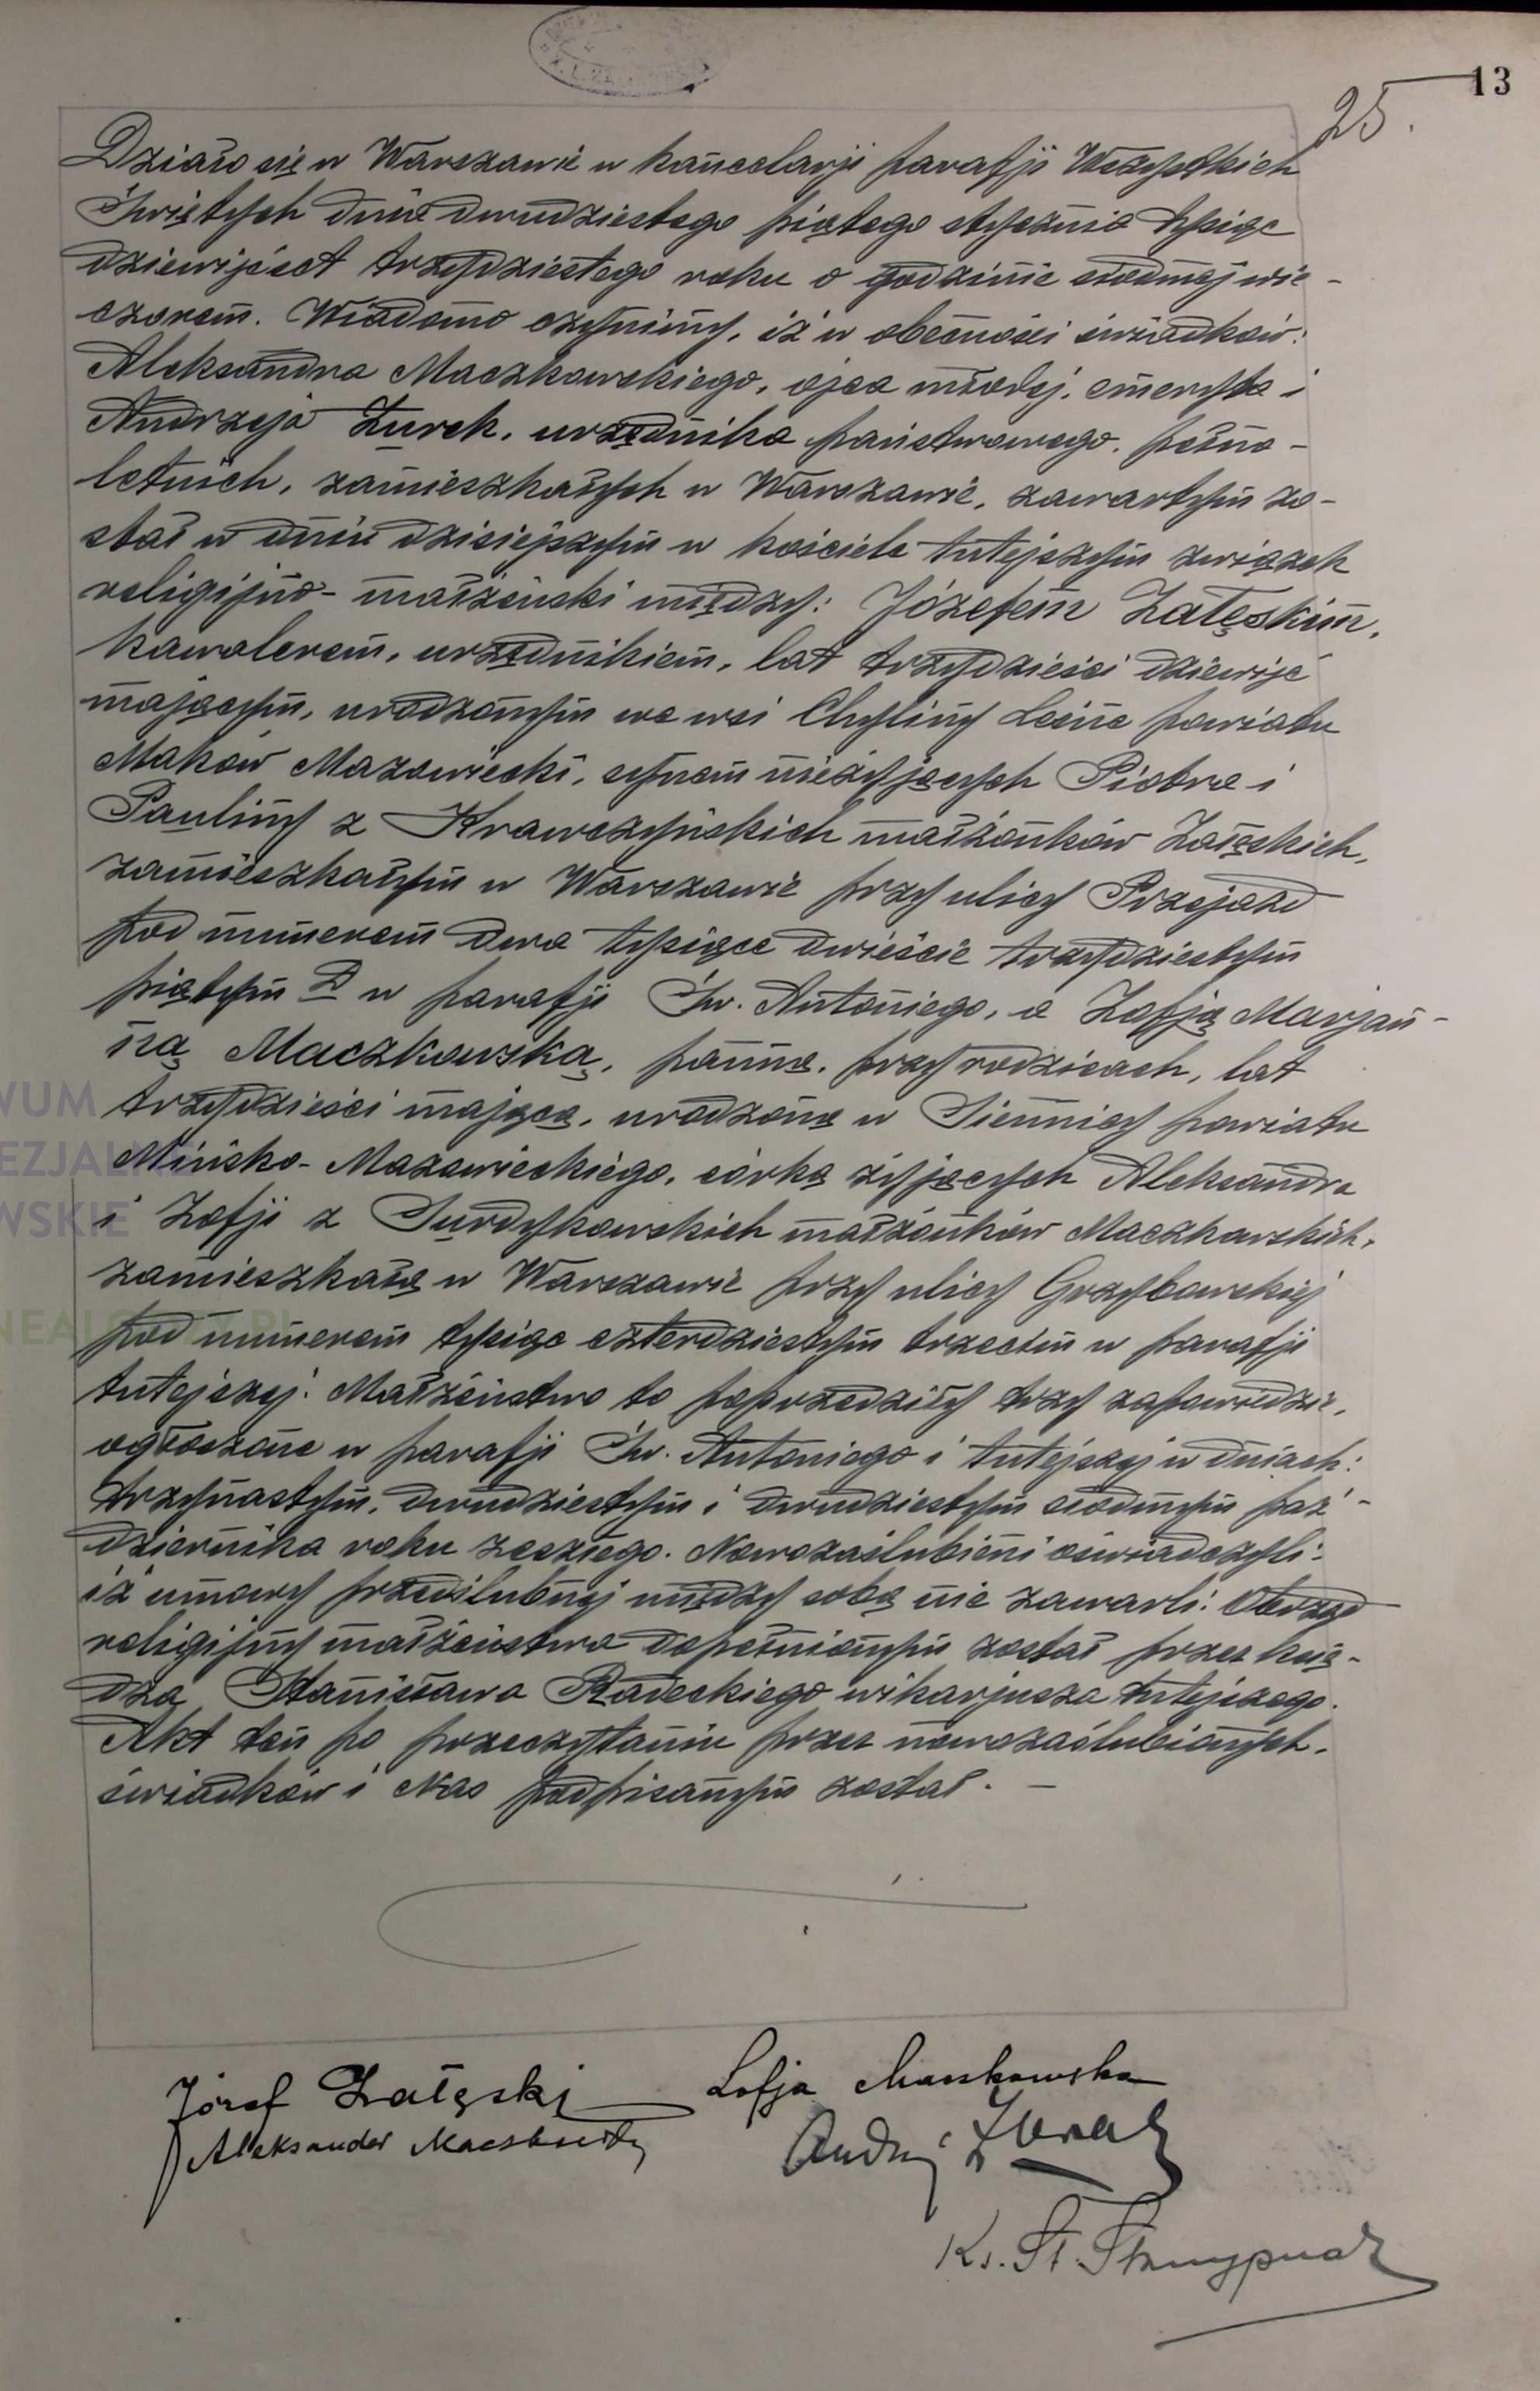 13
25.
Działo się w Warszawie w kancelarji parafji Wszystkich
Świętych dnia dwudziestego piątego stycznia tysiąc
dziewięćset trzydziestego roku o godzinie siódmej wie-
czorem. Wiadomo czynimy, iż w obecności świadków:
Aleksandra Maczkowskiego, ojca młodej, emeryta i
Andrzeja Żurek, urzędnika państwowego, pełno-
letnich, zamieszkałych w Warszawie, zawartym zo-
stał w dniu dzisiejszym w kościele tutejszym związek
religijno-małżeński między: Józefem Załęskim,
kawalerem, urzędnikiem, lat trzydzieści dziewięć
mającym, urodzonym we wsi Chyliny Leśne powiatu
Maków Mazowiecki, synem nieżyjących Piotra i
Pauliny z Krawczyńskich małżonków Załęskich,
zamieszkałym w Warszawie przy ulicy Przejazd
pod numerem dwa tysiące dwieście trzydziestym
piątym D w parafji Św. Antoniego, a Zofją Marjan-
ną Maczkowską, panną, przy rodzicach, lat
trzydzieści mającą, urodzoną w Siennicy powiatu
Mińsko-Mazowieckiego, córką żyjących Aleksandra
i Zofji z Surdykowskich małżonków Maczkowskich,
zamieszkałą w Warszawie przy ulicy Grzybowskiej
pod numerem tysiąc czterdziestym trzecim w parafji
tutejszej. Małżeństwo to poprzedziły trzy zapowiedzie,
ogłoszone w parafji Św. Antoniego i tutejszej w dniach:
trzynastym, dwudziestym i dwudziestym siódmym paź-
dziernika roku zeszłego. Nowozaślubieni oświadczyli:
iż umowy przedślubnej między sobą nie zawarli. Obrzęd
religijny małżeństwa dopełnionym został przez księ-
dza Stanisława Radeckiego wikarjusza tutejszego.
Akt ten po przeczytaniu przez nowozaślubionych,
świadków i Nas podpisanym został. —
Józef Załęski Zofja Maczkowska
Aleksander Maczkowski Andrzej Żurek
Ks. St.
WUM
EZJALNE
WSKIE
NEALODZY.PL